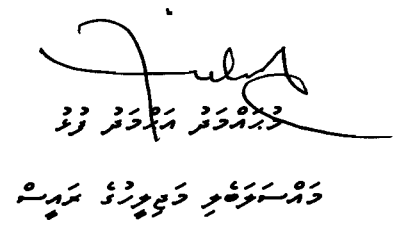 މުޙައްމަދު އަޙްމަދު ފުޅު
މައްސަލަބެލި މަޖިލީހުގެ ރައީސް